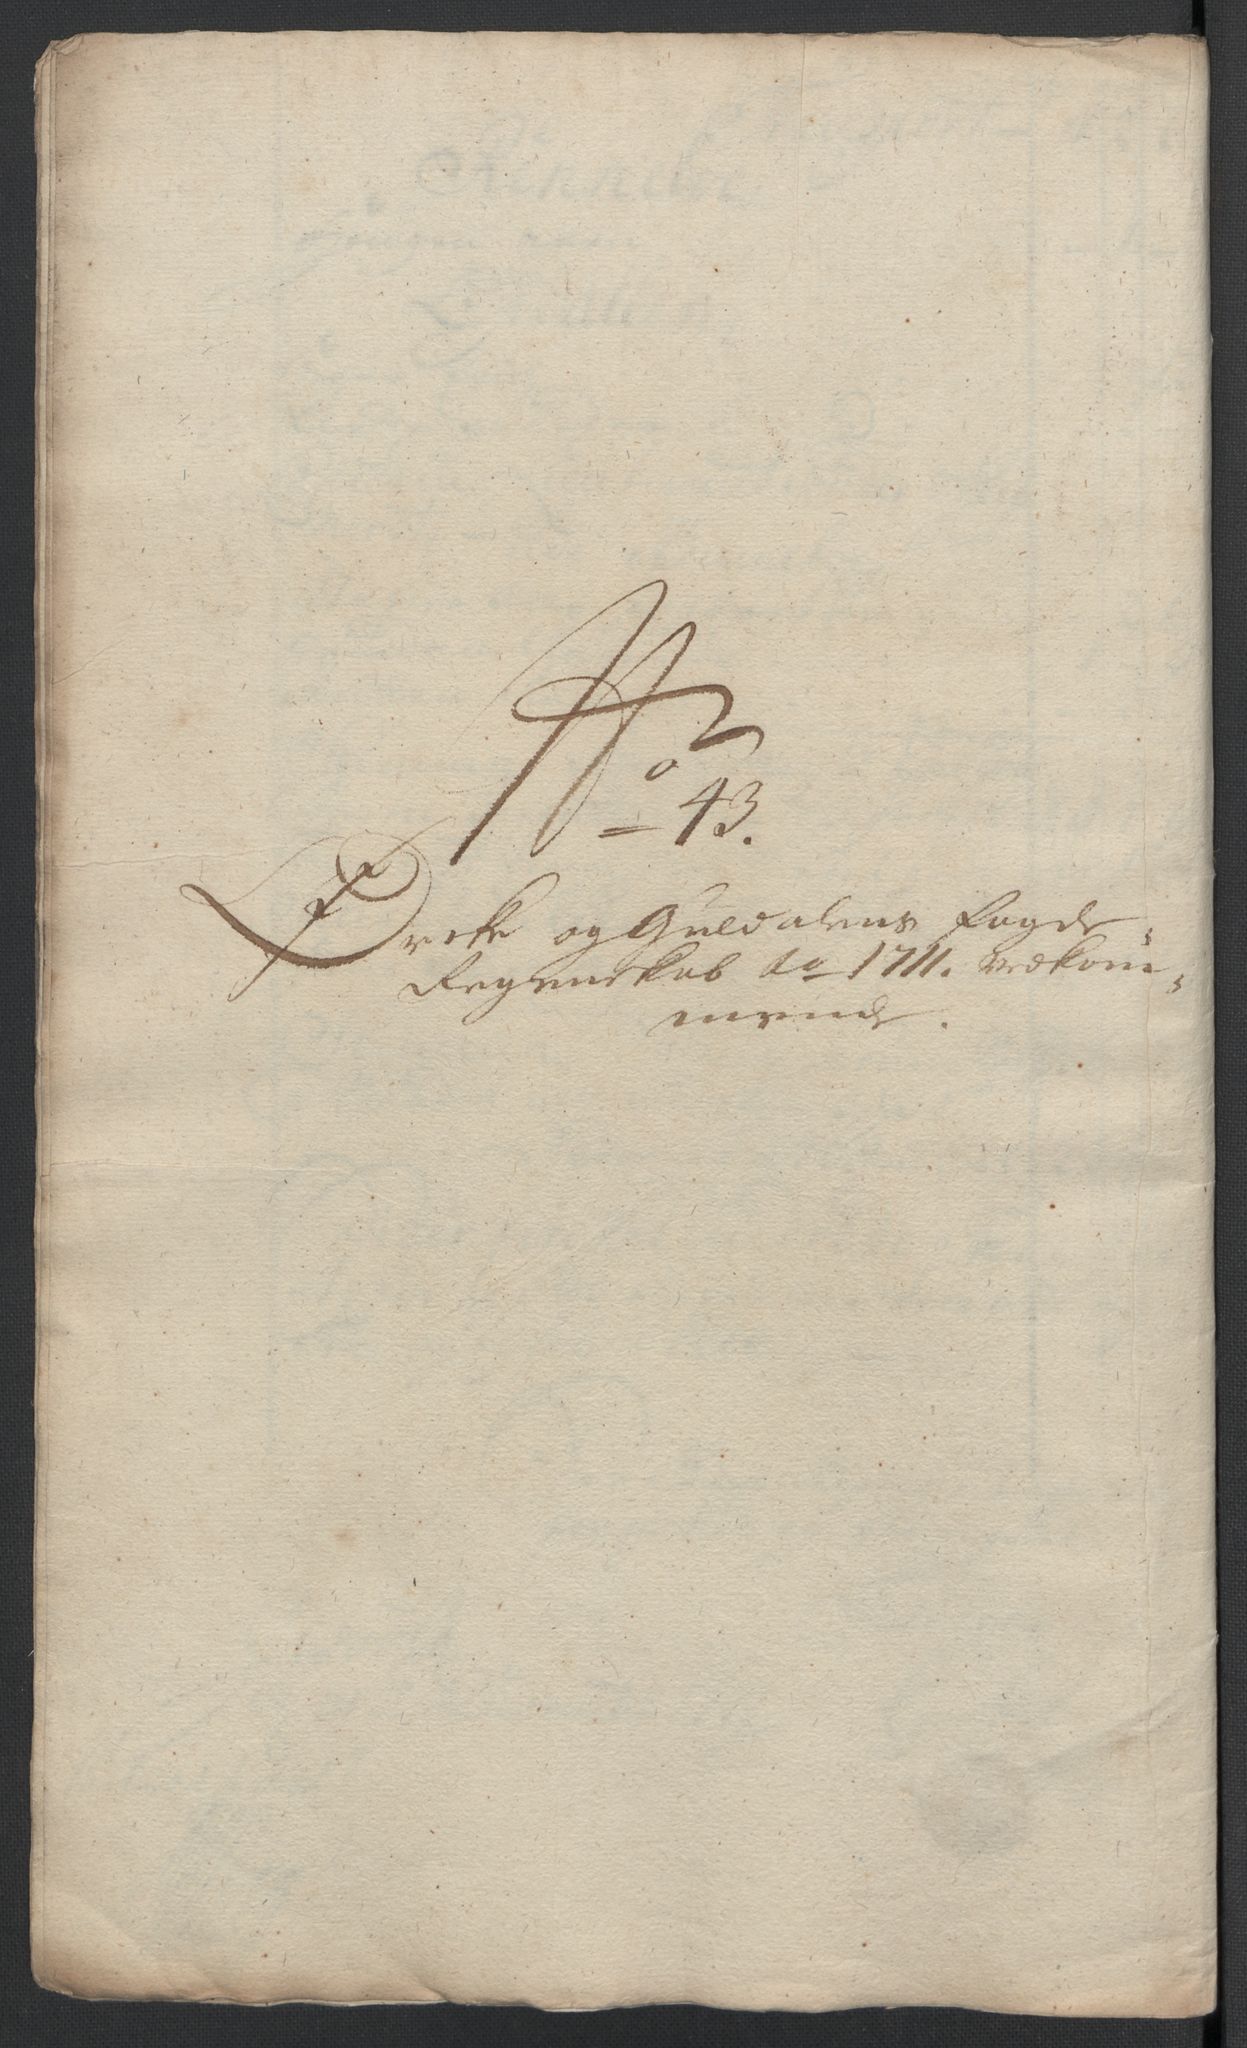 No
43.
Orcke og Guldalens fogde-
Regenskab Ao 1711. vedkom-
mende.